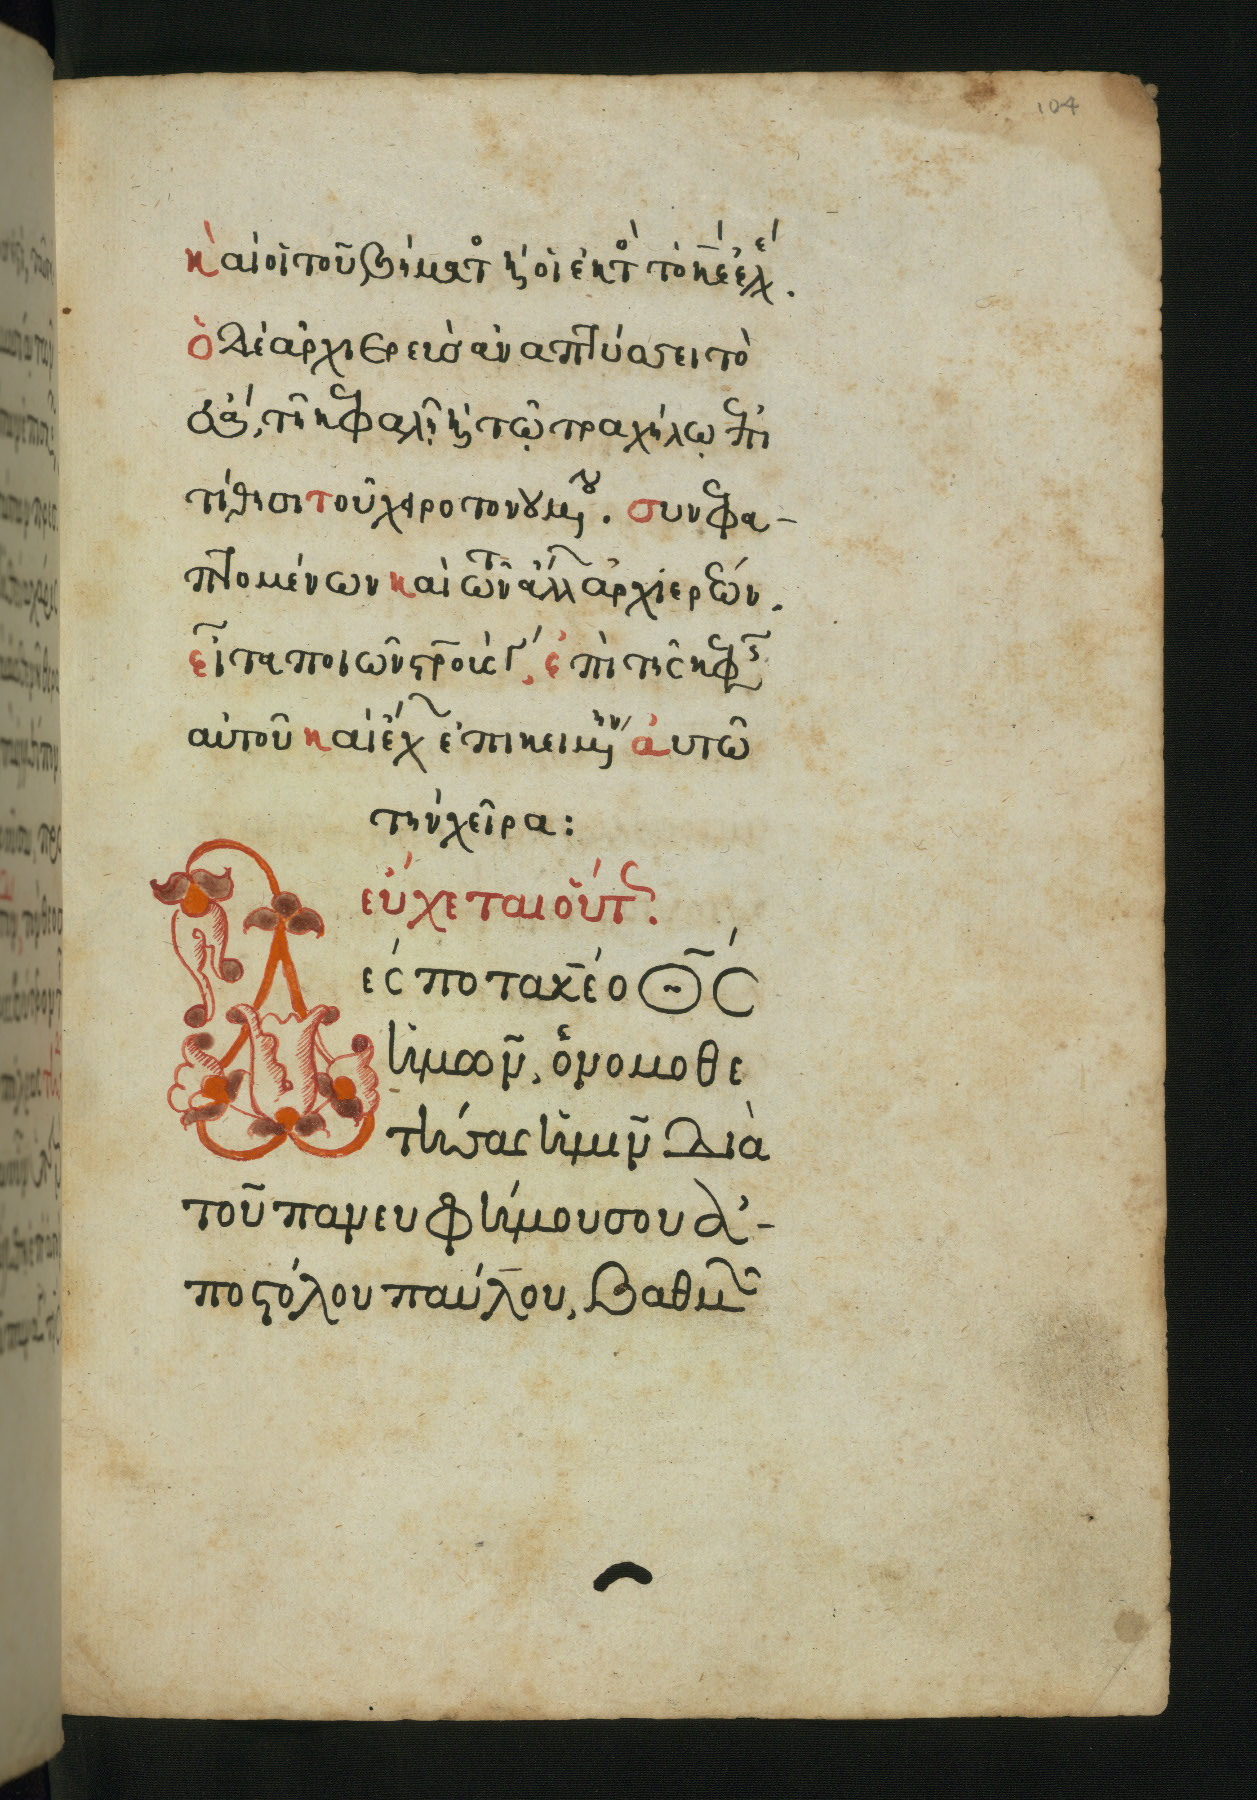 104
καὶ οἱ τοῦ βήματ κ οἱ ἐκτ τὸ κε ἐλ.
ὁ δὲ ἀρχιερεὺς ἀναπτύας ει τὸ
ἐυα, τῆ κεφαλῆ κ τῷ τραχήλῳ ἐπι
τίθησι τοῦ χειροτονουμ. συνεφα-
πτομένων καὶ τῶν ἄλλ ἀρχιερέων.
εἶτα ποιῶν στροὺς γ, ἐπὶ τῆς κεφ
αὐτοῦ καὶ ἔχ ἐπικειμην αυτῶ
τὴν χεῖρα:
εὔχεται οὕτ.
Δέσποτα κε ὁ Θς
ἡμων, ὁ νομοθε
τήσας ἡμιν διὰ
τοῦ πανευφήμου σου ἀ-
ποστόλου παύλου, βαθμ